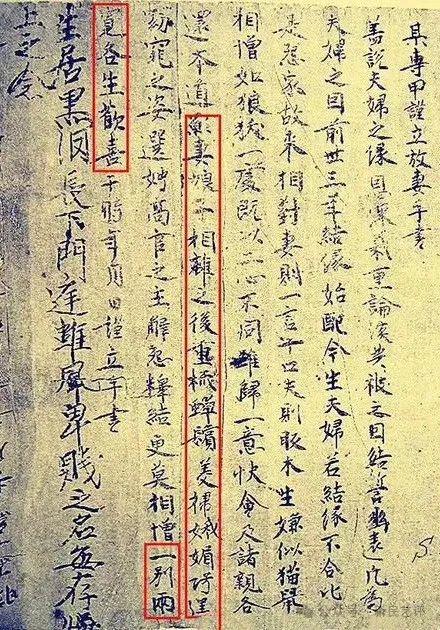 某專甲謹立放妻手書
蓋說夫婦之緣恩深義重論談共被之因結誓幽遠凡為
夫婦之因前世三年結緣始配今生夫婦若結緣不合比
是怨家故來相對妻則一言十口夫則木生嫌似猫鼠
相憎如狼一處既以二心不同難歸一意快會及諸親各
還本道願妻娘子相離之後重梳蟬鬢美掃娥媚巧逞
窈窕之姿選娉高官之主解怨釋結更莫相憎一別兩
寬各生歡喜于時年月日謹立手書
生居黑長下門庭雖風卑賤之名無存
上之念